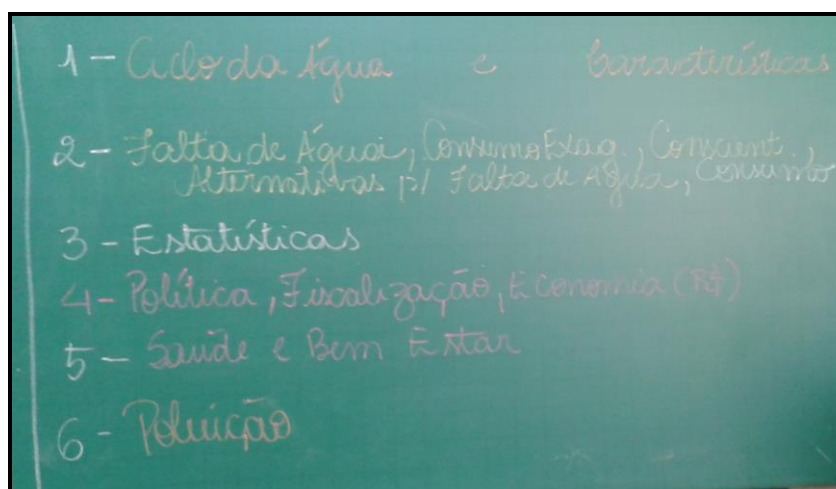 1 - Ciclo da Água e Características
2 - Falta de Água, Consumo Exag., Conscient.,
Alternativas p/ Falta de Água, Consumo
3 - Estatísticas
4 - Política, Fiscalização, Economia (R$)
5 - Saúde e Bem Estar
6 - Poluição